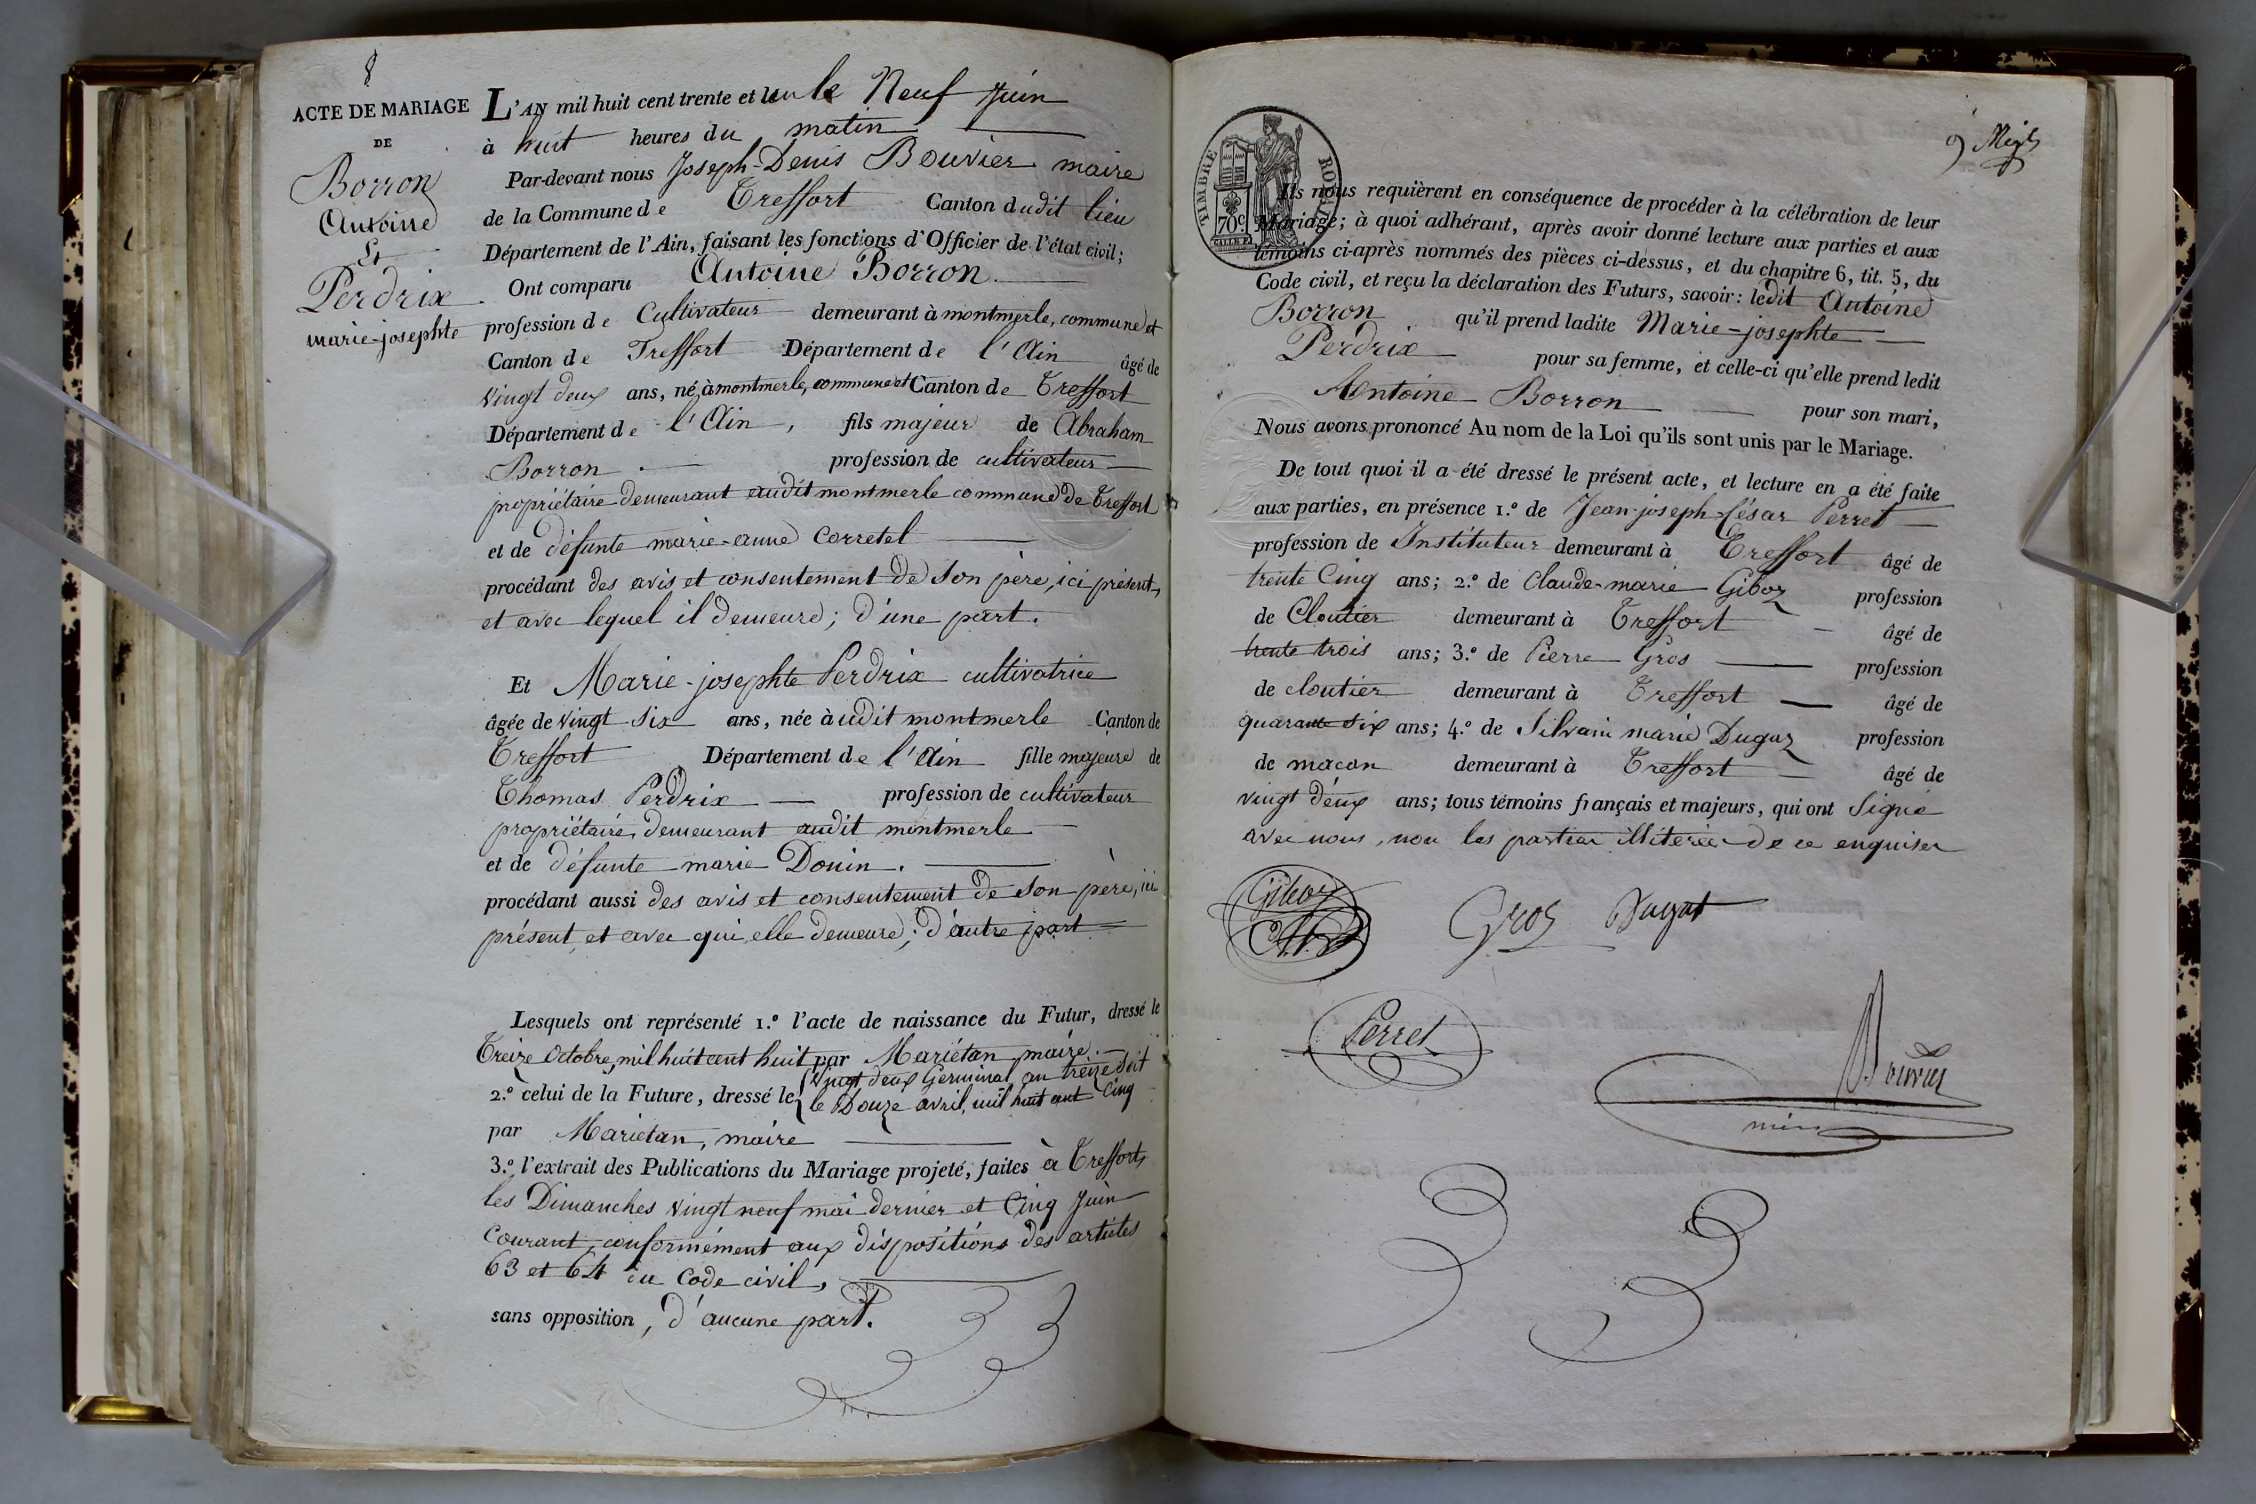 8
ACTE DE MARIAGE
DE
Borron
Antoine
Et
Perdrix
marie-josephte
L'AN mil huit cent trente et un le Neuf Juin
à huit heures du matin
Par-devant nous Joseph-Denis Bouvier maire
de la Commune de Treffort Canton dudit lieu
Département de l'Ain, faisant les fonctions d'Officier de l'état civil;
Ont comparu Antoine Borron
profession de Cultivateur demeurant à montmerle, commune et
Canton de Treffort Département de l'Ain âgé de
vingt deux ans, né à montmerle, commune et Canton de Treffort
Département de l'Ain, fils majeur de Abraham
Borron profession de cultivateur
propriétaire demeurant audit montmerle commune de Treffort
et de défunte marie-anne Corretel
procédant des avis et consentement de son père, ici présent,
et avec lequel il demeure; d'une part.
Et Marie-josephte Perdrix cultivatrice
âgée de vingt six ans, née audit montmerle Canton de
Treffort Département de l'Ain fille majeure de
Thomas Perdrix profession de cultivateur
propriétaire, demeurant audit montmerle
et de défunte marie Donin.
procédant aussi des avis et consentement de son père, ici
présent, et avec qui elle demeure; d'autre part
Lesquels ont représenté 1.º l'acte de naissance du Futur, dressé le
Treize Octobre, mil huit cent huit par Mariétan, maire.
2.º celui de la Future, dressé le vingt deux Germinal an treize soit
le Douze avril, mil huit cent Cinq
par Mariétan, maire
3.º l'extrait des Publications du Mariage projeté, faites à Treffort,
les Dimanches vingt neuf mai dernier et Cinq Juin
Courant, conformément aux dispositions des articles
63 et 64 du Code civil,
sans opposition, d'aucune part.
9
TIMBRE ROYAL
70c
Ils nous requièrent en conséquence de procéder à la célébration de leur
Mariage; à quoi adhérant, après avoir donné lecture aux parties et aux
témoins ci-après nommés des pièces ci-dessus, et du chapitre 6, tit. 5, du
Code civil, et reçu la déclaration des Futurs, savoir: ledit Antoine
Borron qu'il prend ladite Marie-josephte
Perdrix pour sa femme, et celle-ci qu'elle prend ledit
Antoine Borron pour son mari,
Nous avons prononcé Au nom de la Loi qu'ils sont unis par le Mariage.
De tout quoi il a été dressé le présent acte, et lecture en a été faite
aux parties, en présence 1.º de Jean-joseph-César Perret
profession de Instituteur demeurant à Treffort âgé de
trente Cinq ans; 2.º de Claude-marie Giboz profession
de Cloutier demeurant à Treffort âgé de
trente trois ans; 3.º de Pierre Gros profession
de cloutier demeurant à Treffort âgé de
quarante six ans; 4.º de Silvain marie Dugaz profession
de maçon demeurant à Treffort âgé de
vingt deux ans; tous témoins français et majeurs, qui ont signé
avec nous, non les parties illiterées de ce enquises
Giboz
Gros Dugat
Perret
Bouvier